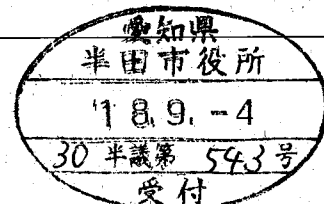 愛知県
半田市役所
18.9.-4
30半議第 543号
受付